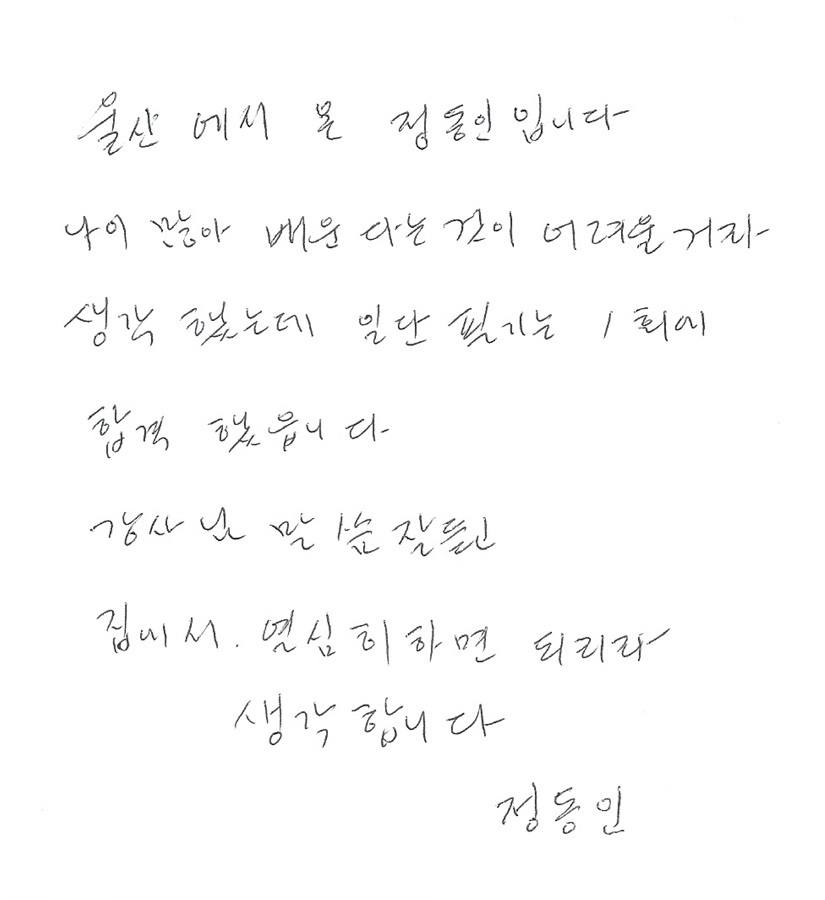 울산에서 온 정동인입니다
나이 많아 배운다는 것이 어려울거라
생각 했는데 일단 필기는 1회에
합격 했읍니다
강사님 말씀 잘듣고
집에서. 열심히하면 되리라
생각합니다
정동인